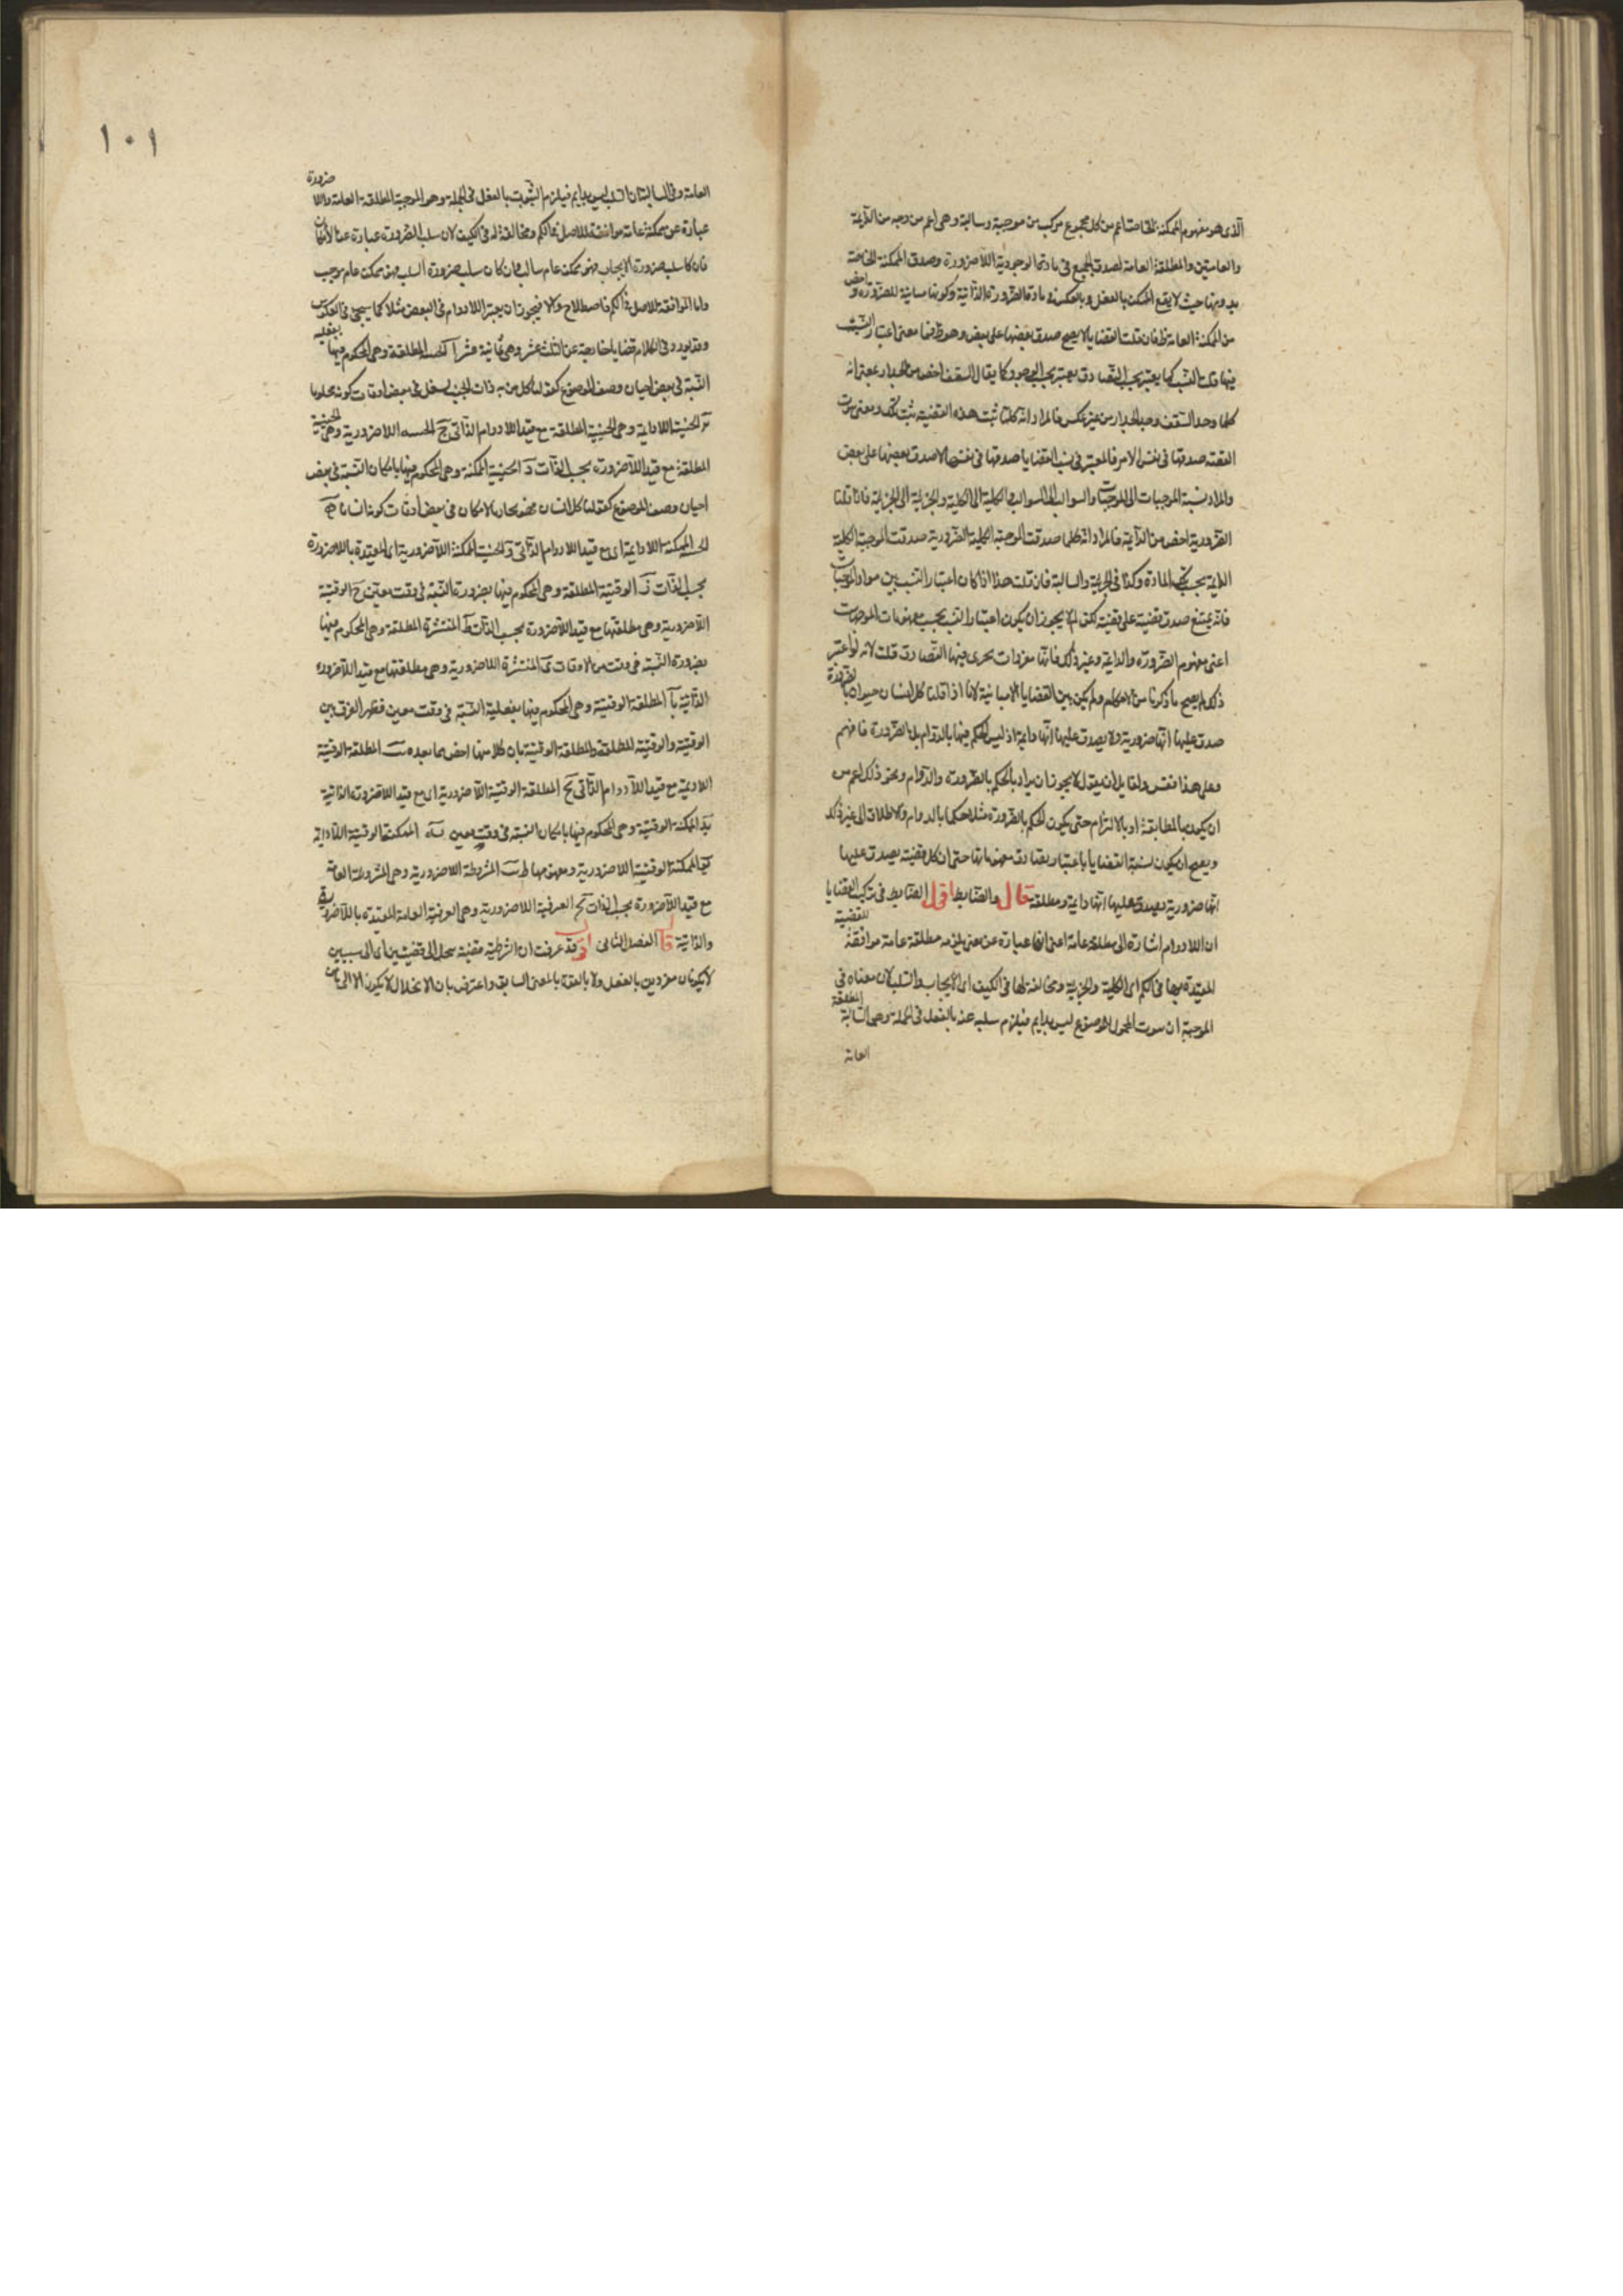 الذى هو مفهوم الممكنة الخاصة اعم من كل مجموع مركب من موجبة وسالبة وهى اعم من وجه من الدائمة
والعامتين والمطلقة العامة لصدق الجميع فى مادة الوجودية اللاضرورية وصدق الممكنة الخاصة
بدونها حيث لا يقع الممكن بالفعل وبالعكس فى مادة الضرورة الذاتية وكونها مباينة للضرورة واخص
من الممكنة العامة ظ فان قلت القضايا لا يصح صدق بعضها على بعض وهو ظ فما معنى اعتبار النسب
فيها قلت النسب كما يعتبر بحسب التصادق يعتبر بحسب الوجود كما يقال السقف اخص من الجدار بمعنى انه
كلما وجد السقف وجد الجدار من غير عكس فالمراد انه كلما ثبت هذه القضية ثبت تلك ومعنى ثبوت
القضية صدقها فى نفس الامر فالمعتبر فى نسب القضايا صدقها فى نفسها لا صدق بعضها على بعض
والمراد نسبة الموجبات الى الموجبات والسوالب الى السوالب والكلية الى الكلية والجزئية الى الجزئية فاذا قلنا
الضرورية اخص من الدائمة فالمراد انه كلما صدقت الموجبة الكلية الضرورية صدقت الموجبة الكلية
الدائمة بحسب تلك المادة وكذا فى الجزئية والسالبة فان قلت هذا اذا كان اعتبار النسب بين مواد الموجبات
فانه يمتنع صدق قضية على قضية لكن لم لا يجوز ان يكون اعتبار النسب بحسب مفهومات الموجهات
اعنى مفهوم الضرورة والدائمة وغير ذلك فانها مفردات يجرى فيها التصادق قلت لانه لو اعتبر
ذلك لم يصح ما ذكرنا من الاحكام ولم يكن بين القضايا الا مباينة لانا اذا قلنا كل انسان حيوان بالضرورة
صدق عليها انها ضرورية ولا يصدق عليها انها دائمة اذ ليس الحكم فيها بالدوام بل بالضرورة فافهم
وعلى هذا فقس ولقايل ان يقول لا يجوز ان يراد بالحكم بالضرورة والدوام ونحو ذلك اعم من
ان يكون بالمطابقة او بالالتزام حتى يكون الحكم بالضرورة مثلا حكما بالدوام والاطلاق الى غير ذلك
ويصح ان يكون نسبة القضايا باعتبار تصادق مفهوماتها حتى ان كل قضية يصدق عليها
انها ضرورية يصدق عليها انها دائمة ومطلقة قال والضابط اقول الضابط فى تركيب القضايا
ان اللادوام اشارة الى مطلقة عامة اعنى انه عبارة عن معنى يلزمه مطلقة عامة موافقة للقضية
المقيدة بها فى الكم اى الكلية والجزئية ومخالفة لها فى الكيف اى الايجاب والسلب لان معناه فى
الموجبة ان ثبوت المحمول للموضوع ليس بدايم فيلزم سلبه عنه بالفعل فى الجملة وهى السالبة المطلقة
العامة
١٠١
العامة وفى السالبة ان السلب ليس بدايم فيلزم الثبوت بالفعل فى الجملة وهو الموجبة المطلقة العامة واللاضرورة
عبارة عن ممكنة عامة موافقة للاصل فى الكم ومخالفة له فى الكيف لان سلب الضرورة عبارة عن الامكان
فان كان سلب ضرورة الايجاب فهو ممكن عام سالب وان كان سلب ضرورة السلب فهو ممكن عام موجب
واما الموافقة للاصل فى الكم فاصطلاح والا فيجوز ان يعتبر اللادوام فى البعض مثلا كما سيجئ فى العكوس
وقد يورد فى الكلام قضايا خارجة عن الثلث عشر وهى ثمانية عشر آ الحينية المطلقة وهى المحكوم فيها بفعلية
النسبة فى بعض احيان وصف الموضوع كقولنا كل من به ذات الجنب يسعل فى بعض اوقات كونه مجنوبا
ب الحينية اللادائمة وهى الحينية المطلقة مع قيد اللادوام الذاتى ج الحينية اللاضرورية وهى الحينية
المطلقة مع قيد اللاضرورة بحسب الذات د الحينية الممكنة وهى المحكوم فيها بامكان النسبة فى بعض
احيان وصف الموضوع كقولنا كل انسان فهو بالامكان فى بعض اوقات كونه انسانا ه
الحينية الممكنة اللادائمة اى مع قيد اللادوام الذاتى و الحينية الممكنة اللاضرورية اى المقيدة باللاضرورة
بحسب الذات ز الوقتية المطلقة وهى المحكوم فيها بضرورة النسبة فى وقت معين ح الوقتية
اللاضرورية وهى مطلقتها مع قيد اللاضرورة بحسب الذات ط المنتشرة المطلقة وهى المحكوم فيها
بضرورة النسبة فى وقت من الاوقات ى المنتشرة اللاضرورية وهى مطلقتها مع قيد اللاضرورة
الذاتية يا المطلقة الوقتية وهى المحكوم فيها بفعلية النسبة فى وقت معين فظهر الفرق بين
الوقتية والوقتية المطلقة والمطلقة الوقتية بان كلا منها اخص مما بعده يب المطلقة الوقتية
اللادائمة مع قيد اللادوام الذاتى يج المطلقة الوقتية اللاضرورية اى مع قيد اللاضرورة الذاتية
يد الممكنة الوقتية وهى المحكوم فيها بامكان النسبة فى وقت معين يه الممكنة الوقتية اللادائمة
يو الممكنة الوقتية اللاضرورية ومفهومها ظ يز المشروطة اللاضرورية وهى المشروطة العامة
مع قيد اللاضرورة بحسب الذات يح العرفية اللاضرورية وهى العرفية العامة المقيدة باللاضرورية
والذاتية قال الفصل الثانى اقول قد عرفت ان الشرطية قضية تنحل الى قضيتين اى الى شيئين
لا يكونان مفردين بالفعل ولا بالقوة بالمعنى السابق واعترض بان الانحلال لا يكون الا الى ما